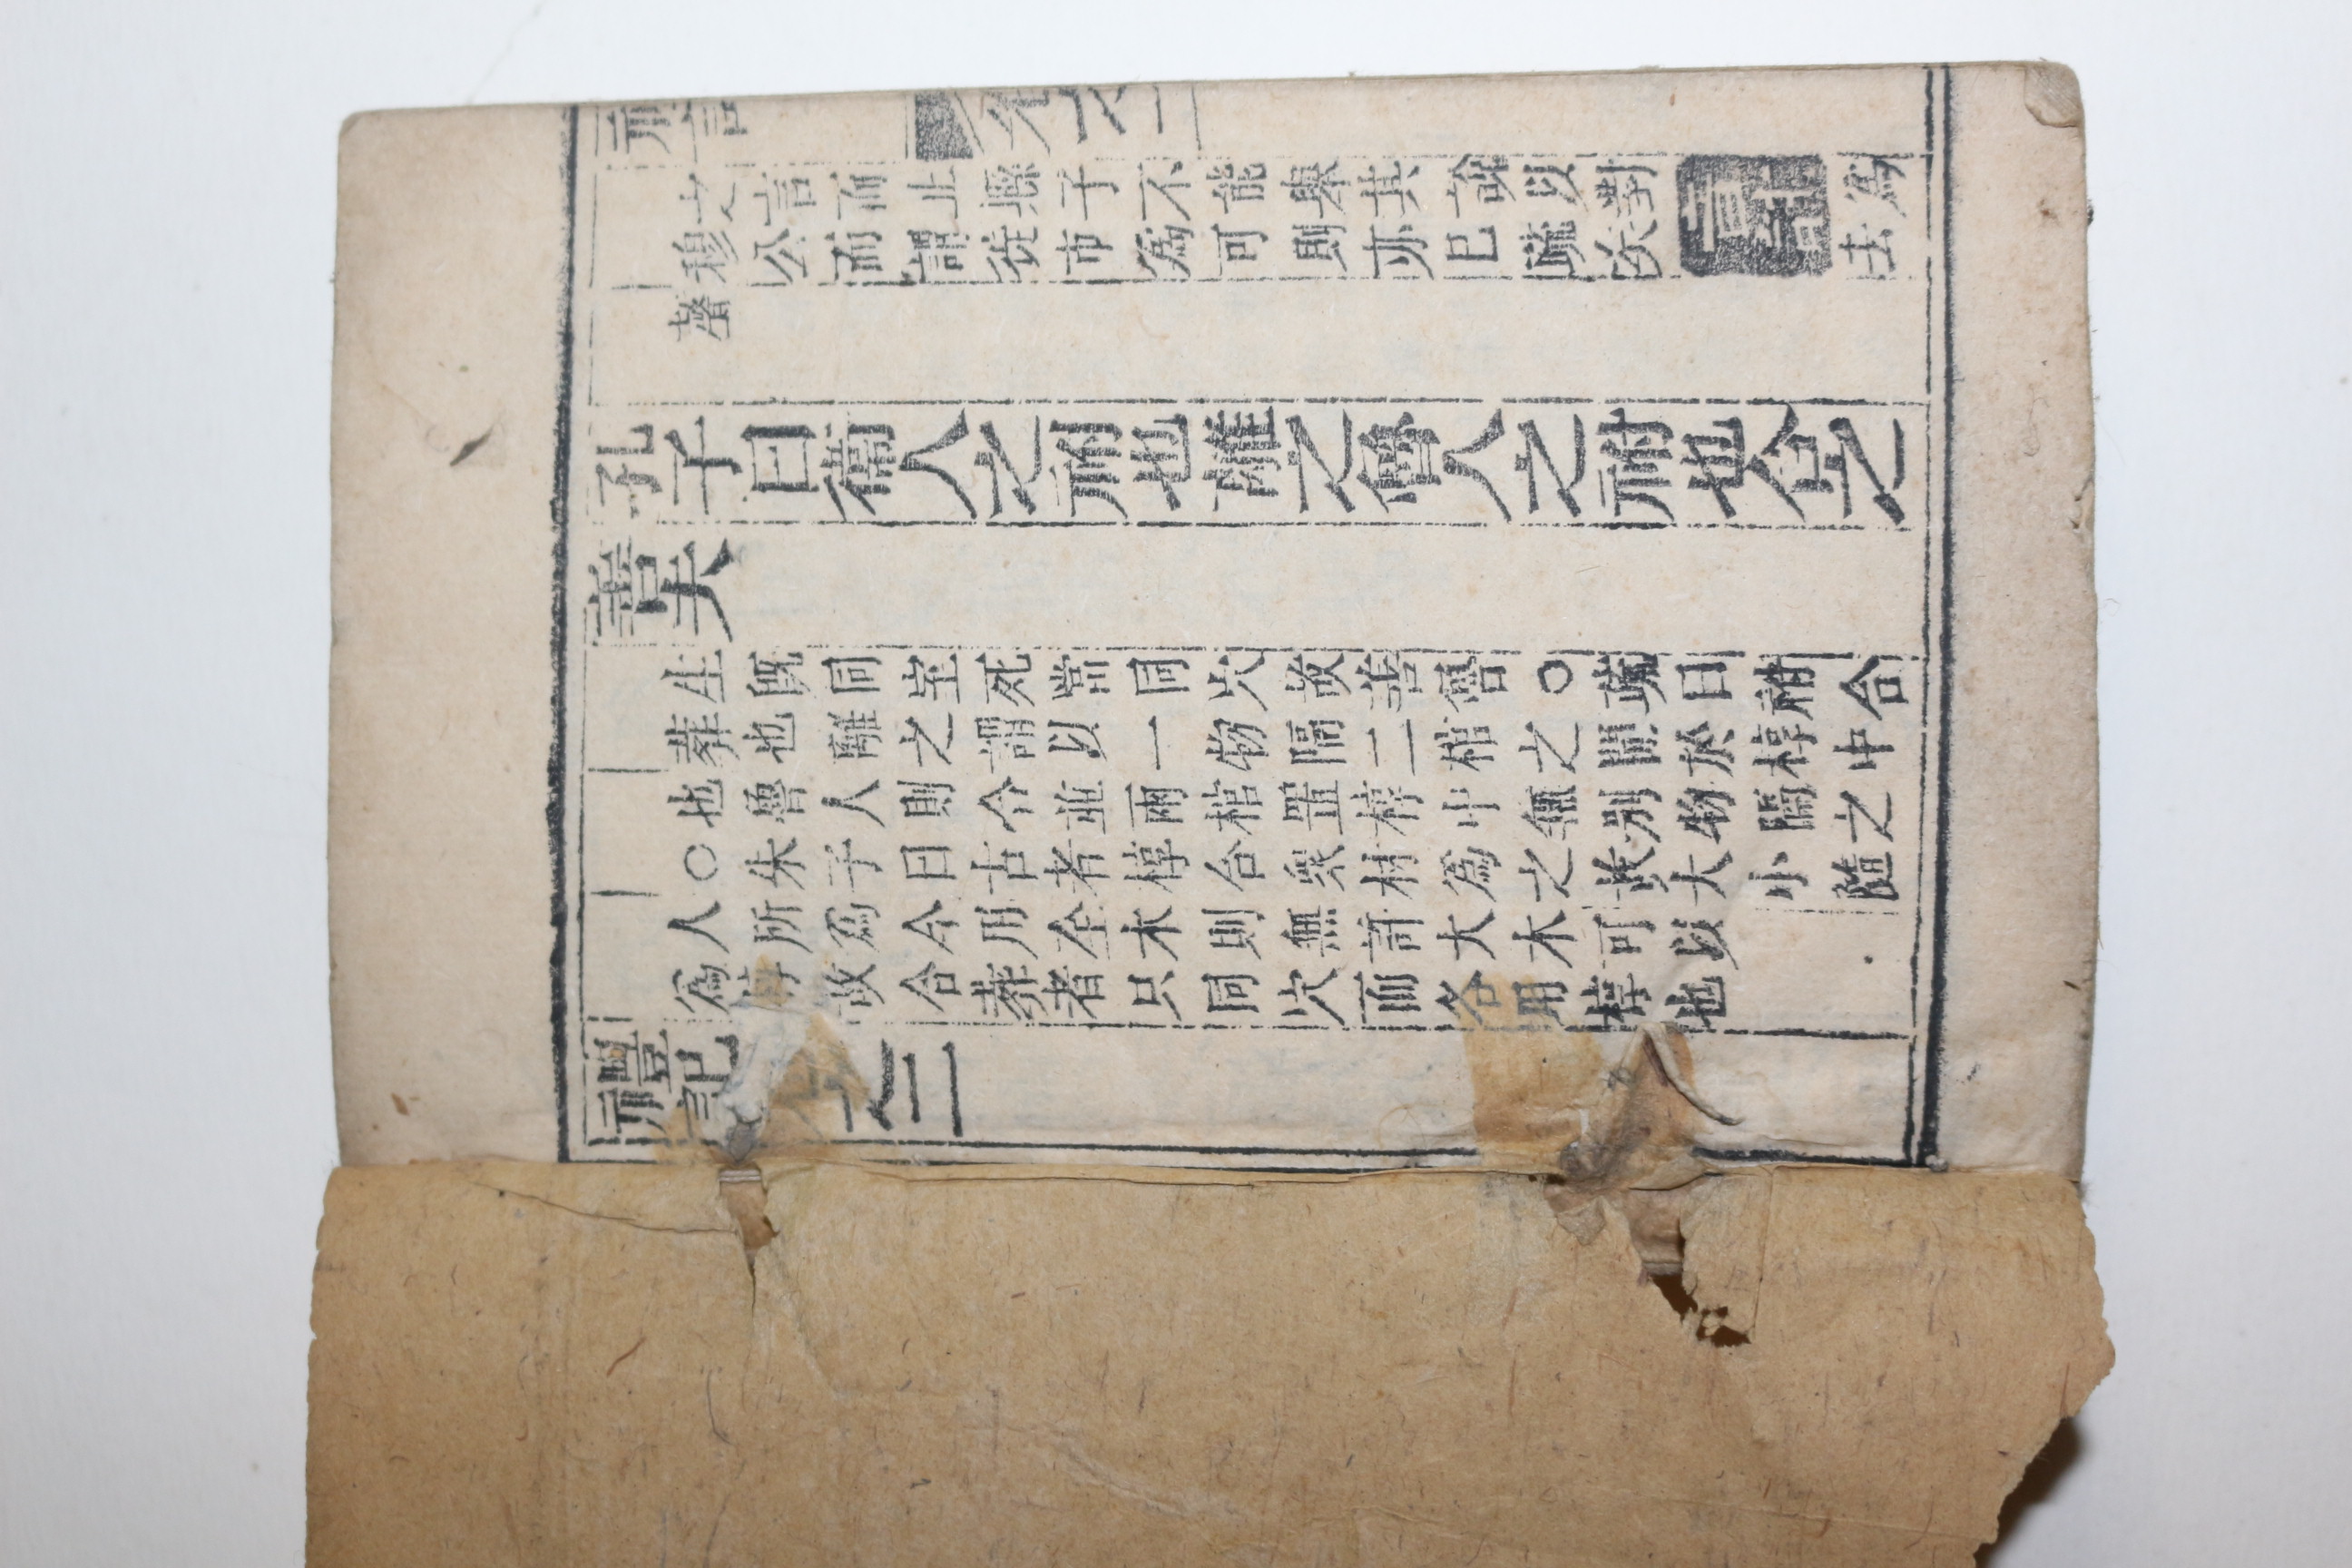 之二
之言而止縣子不能舉其說以對爲
穆公而謂徙市爲可則亦已疏矣去
聲
孔子曰衞人之祔也離之魯人之祔也合之
善夫
生旣同室死當同穴故善魯○疏曰祔合
葬也離之謂以一物隔二棺之間於椁中
也魯人則合並兩棺置椁中無別物隔之
○朱子曰古者椁合衆材爲之故大小隨
人所爲今用全木則無許大木可以
爲椁故合葬者只同穴而各用椁也
禮記之二